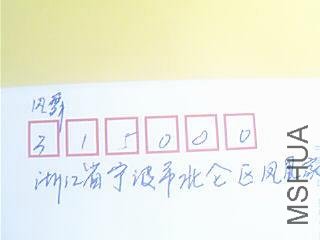 315000
浙江省宁波市北仑区凤
MSHUA